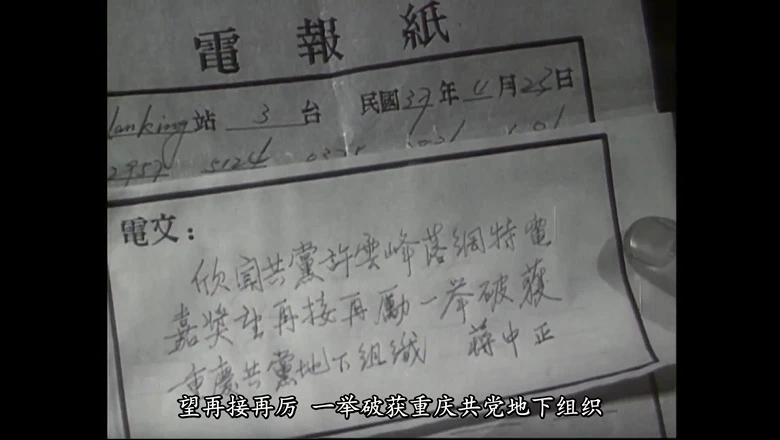 電報紙
Nanking站 3 台 民國37年4月23日
2957 5124
電文：
欣聞共黨許雲峰落網特電
嘉奖望再接再勵一举破獲
重慶共黨地下組織 蔣中正
望再接再厉 一举破获重庆共党地下组织